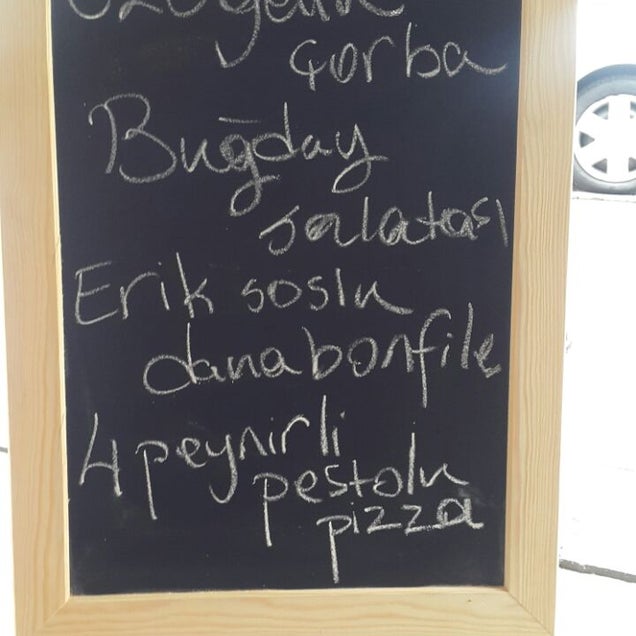 çorba
Buğday
salatası
Erik soslu
dana bonfile
4 peynirli
pestolu
pizza